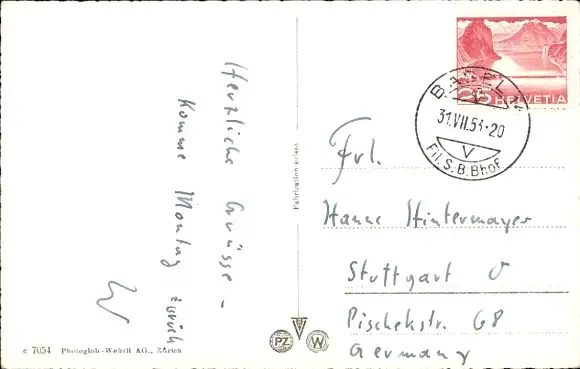 Herzliche Grüsse –
Komme Montag zurück
W
Fabrication suisse
25 HELVETIA
BASEL 2
31.VII.53-20
V
Fil. S.B.Bhof.
Frl.
Hanne Hintermayer
Stuttgart O
Pischekstr. 68
Germany
c 7054 Photoglob-Wehrli AG., Zürich
PZ
W